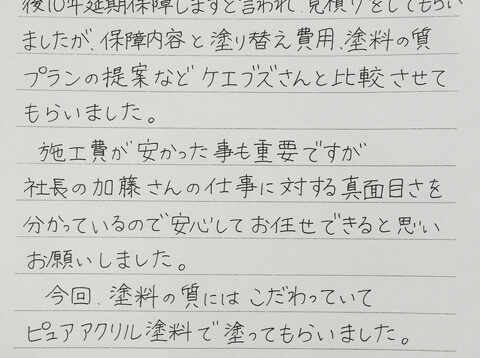 後10年延期保障しますと言われ、見積りをしてもらい
ましたが、保障内容と塗り替え費用、塗料の質
プランの提案などケエブズさんと比較させて
もらいました。
施工費が安かった事も重要ですが
社長の加藤さんの仕事に対する真面目さを
分かっているので安心してお任せできると思い
お願いしました。
今回、塗料の質にはこだわっていて
ピュアアクリル塗料で塗ってもらいました。